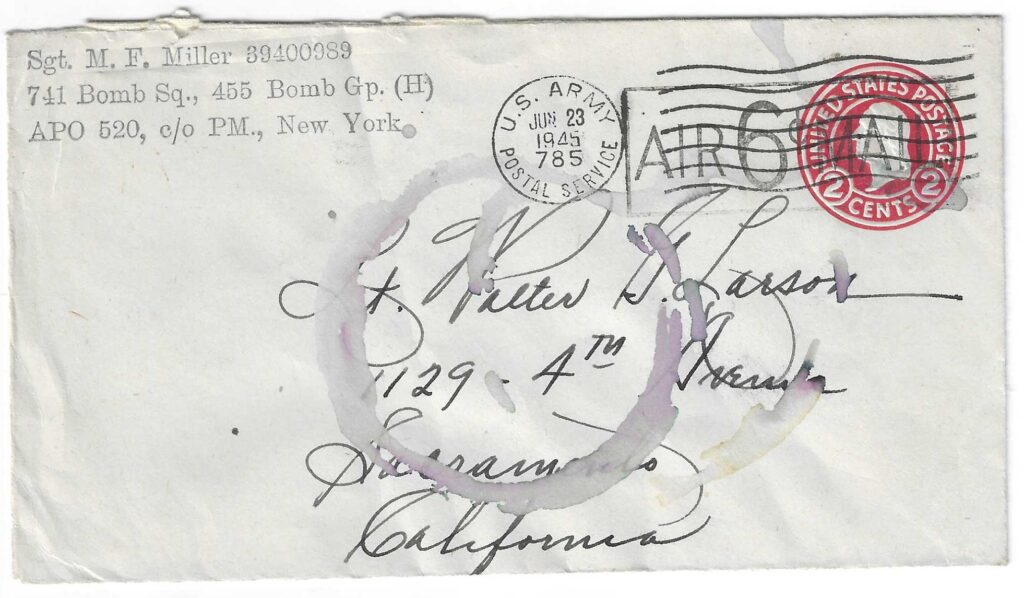 Sgt. M. F. Miller 39400989
741 Bomb Sq., 455 Bomb Gp. (H)
APO 520, c/o PM., New York.
U.S. ARMY
JUN 23
1945
785
POSTAL SERVICE
AIR 6¢ MAIL
UNITED STATES POSTAGE
2 CENTS 2
Lt. Walter Larson
1129 - 4TH Avenue
Sacramento
California